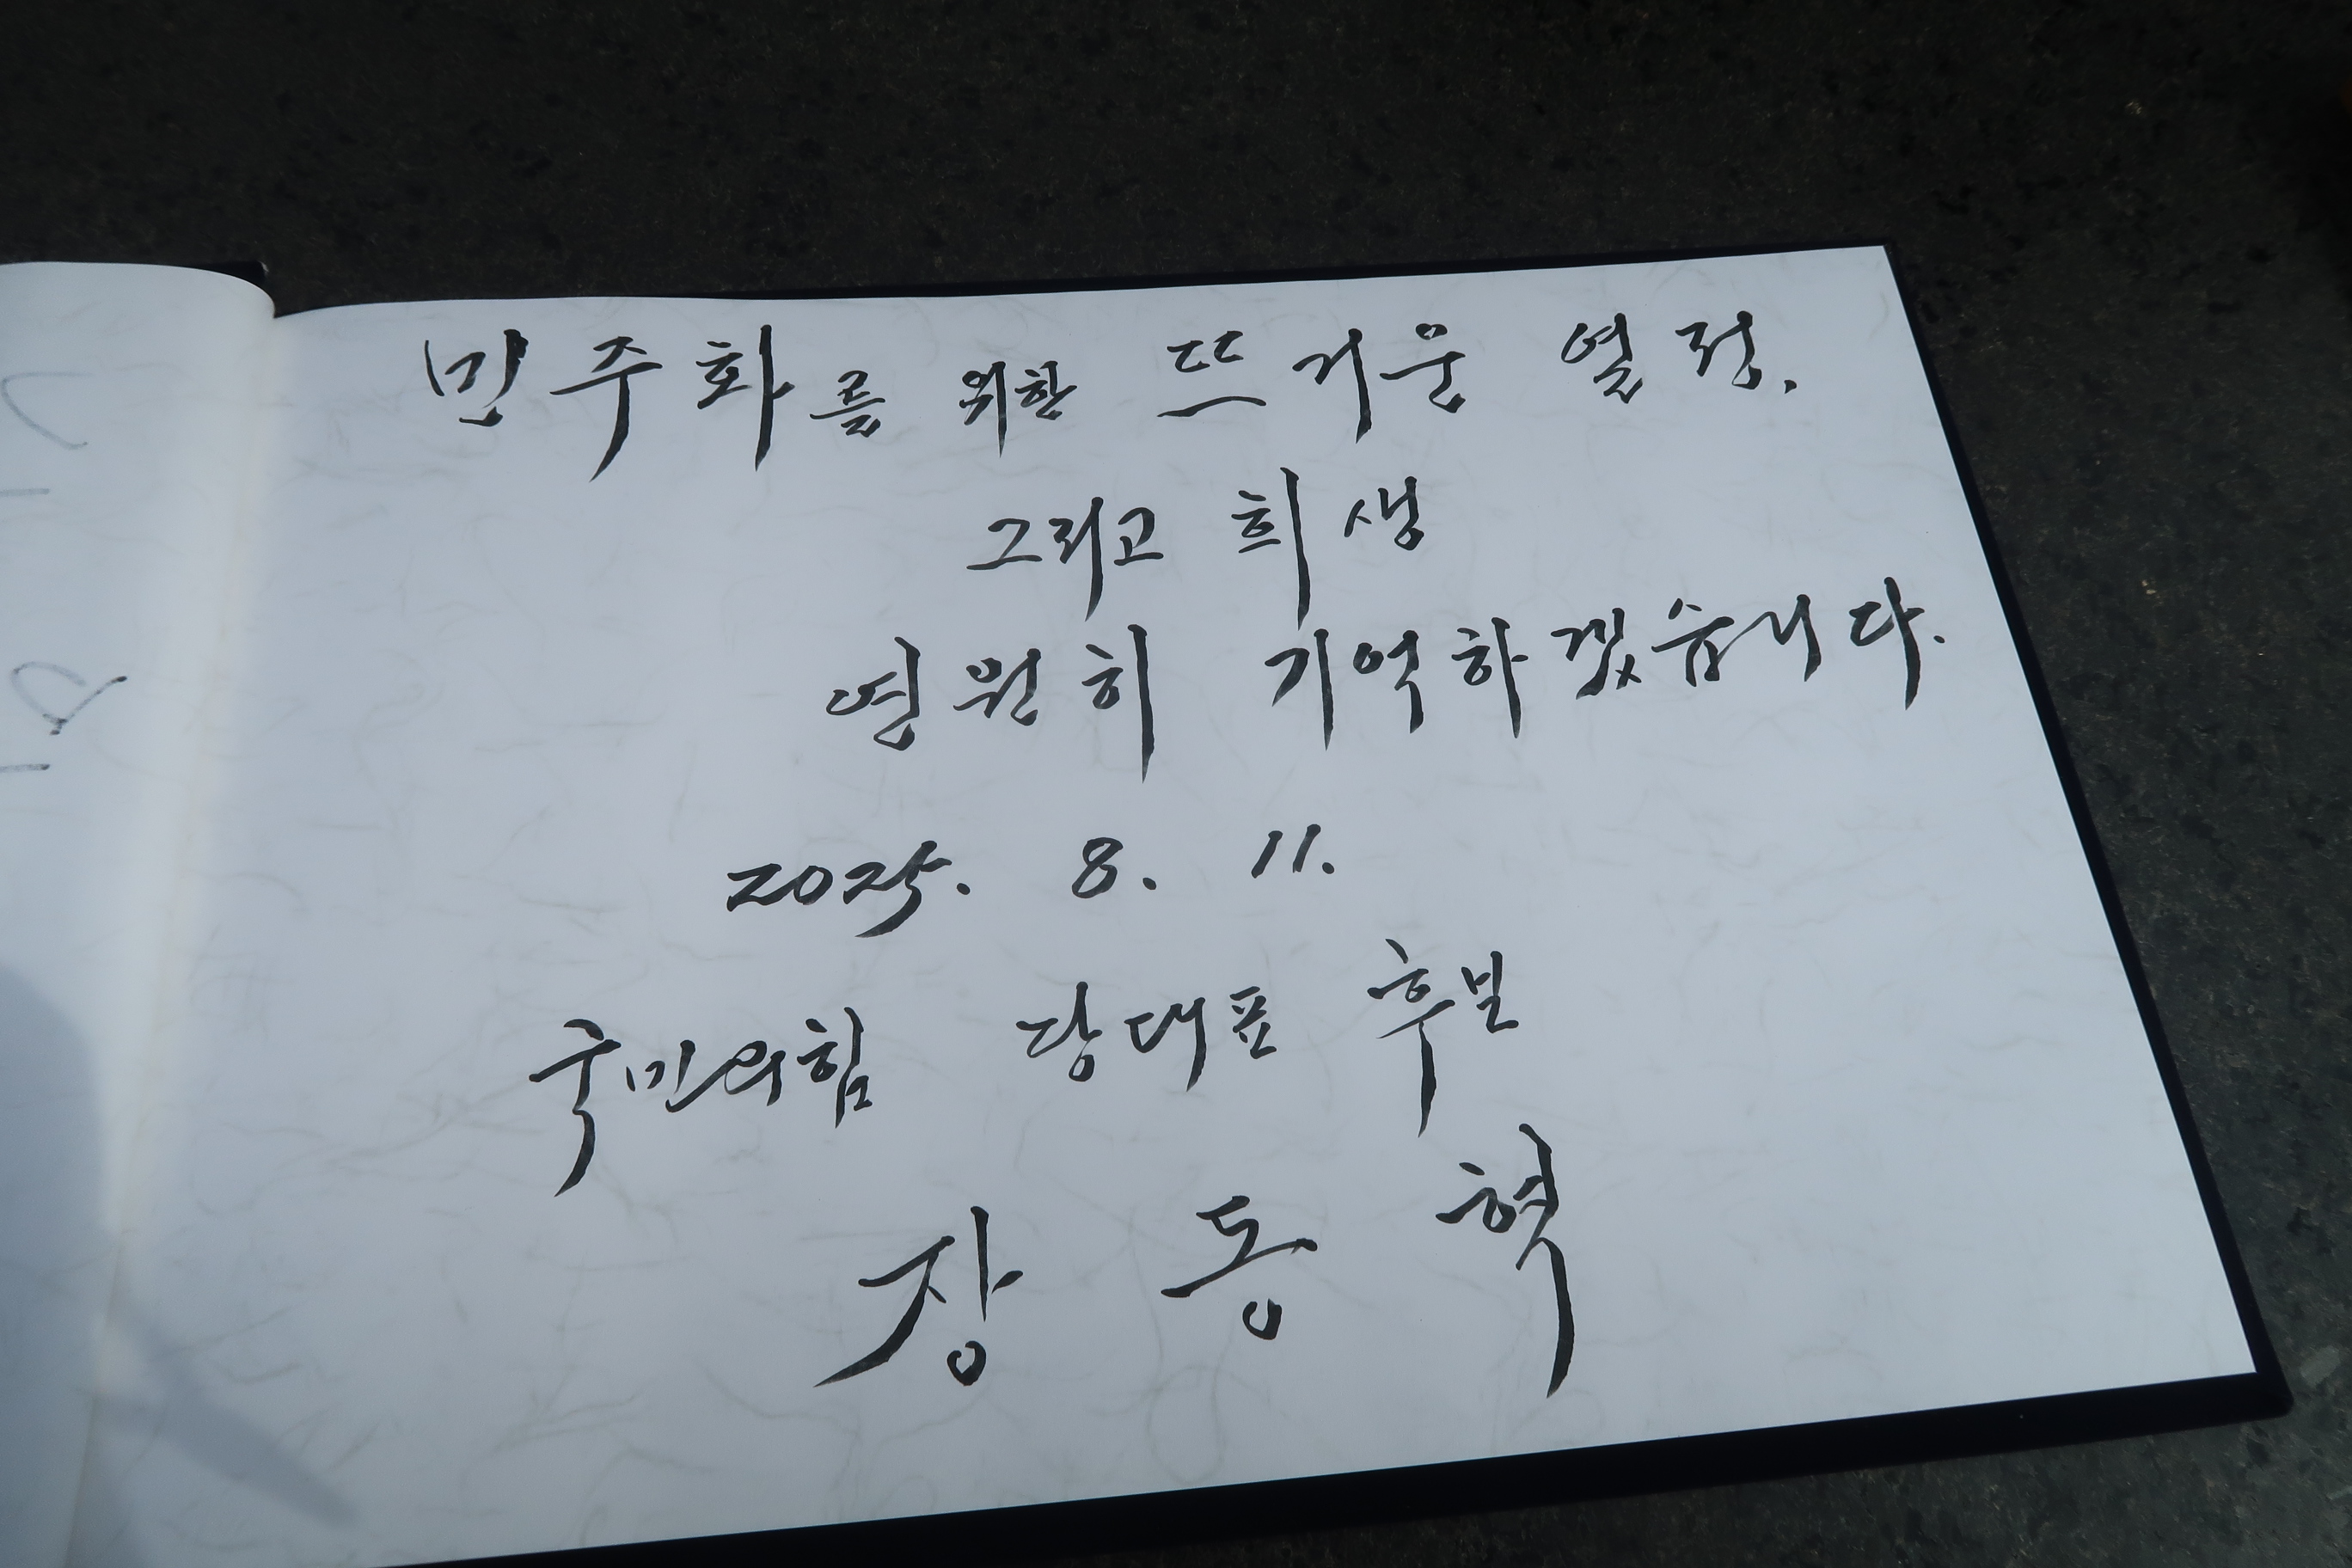 민주화를 위한 뜨거운 열정.
그리고 희생
영원히 기억하겠습니다.
2025. 8. 11.
국민의힘 당대표 후보
장동혁